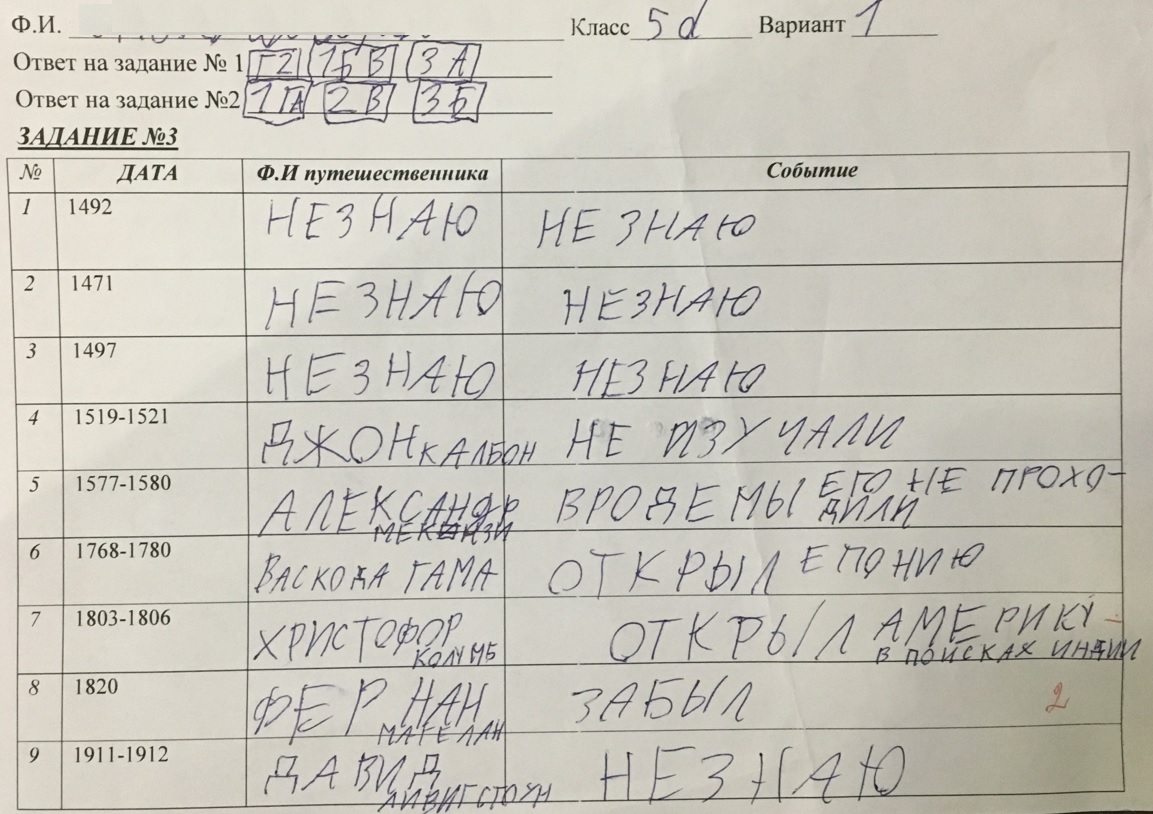 Ф.И. Класс 5d Вариант 1
Ответ на задание № 1 Г2 1Б В 3 А
Ответ на задание №2 1 ГА 2 В 3 Б
ЗАДАНИЕ №3
№ ДАТА Ф.И путешественника Событие
1 1492 НЕЗНАЮ НЕ ЗНАЮ
2 1471 НЕЗНАЮ НЕЗНАЮ
3 1497 НЕЗНАЮ НЕЗНАЮ
4 1519-1521 ДЖОН КАЛБОН НЕ ИЗУЧАЛИ
5 1577-1580 АЛЕКСАНДР ВРОДЕМЫ ЕГО НЕ ПРОХО-
ДИЛИ
6 1768-1780 ВАСКОДА ГАМА ОТКРЫЛ ЕПОНИЮ
7 1803-1806 ХРИСТОФОР ОТКРЫЛ АМЕРИКУ
КОЛУМБ В ПОИСКАХ ИНДИИ
8 1820 ФЕРНАН ЗАБЫЛ 2
МАГЕЛЛАН
9 1911-1912 ДАВИД НЕЗНАЮ
ЛИВИГСТОУН